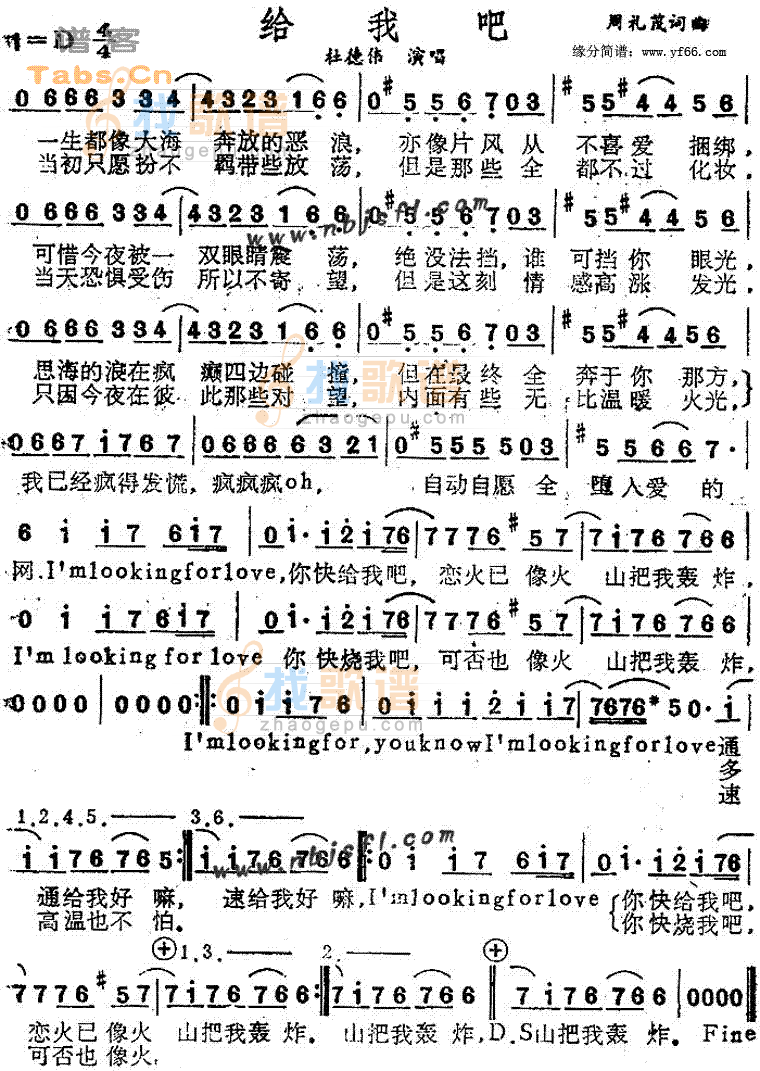 给 我 吧
周礼茂词曲
1=D 4/4
杜德伟 演唱
缘分简谱：www.yf66.com
谱客
Tabs.Cn
找歌谱
zhaogepu.com
0 6 6 6 3 3 4 | 4 3 2 3 1 6 6 | 0 #5 5 6 7 0 3 | #5 5 #4 4 5 6
一生都像大海 奔放的恶 浪， 亦像片风从 不喜爱 捆绑，
当初只愿扮不 羁带些放 荡， 但是那些全 都不过 化妆，
0 6 6 6 3 3 4 | 4 3 2 3 1 6 6 | 0 #5 5 6 7 0 3 | #5 5 #4 4 5 6
www.nbjsfl.com
可惜今夜被一 双眼睛震 荡， 绝没法挡，谁 可挡你 眼光，
当天恐惧受伤 所以不寄 望， 但是这刻情 感高涨 发光，
0 6 6 6 3 3 4 | 4 3 2 3 1 6 6 | 0 #5 5 6 7 0 3 | #5 5 #4 4 5 6
思海的浪在疯 癫四边碰 撞， 但在最终全 奔于你 那方，
只因今夜在彼 此那些对 望， 内面有些无 比温暖 火光，
找歌谱
zhaogepu.com
0 6 6 7 1 7 6 7 | 0 6 6 6 6 6 3 2 1 | 0 #5 5 5 5 0 3 | #5 5 6 6 7 ·
我已经疯得发慌，疯疯疯oh， 自动自愿全 堕入爱的
6 1 1 1 7 6 1 7 | 0 1 · 1 2 1 7 6 | 7 7 7 6 #5 7 | 7 1 7 6 7 6 6
网.I'mlookingforlove,你快给我吧， 恋火已像火 山把我轰炸，
0 1 1 1 7 6 1 7 | 0 1 · 1 2 1 7 6 | 7 7 7 6 #5 7 | 7 1 7 6 7 6 6
I'm looking for love 你快烧我吧，可否也像火 山把我轰炸，
找歌谱
zhaogepu.com
0 0 0 0 | 0 0 0 0 :‖: 0 1 1 1 7 6 | 0 1 1 1 2 1 1 7 | 7 6 7 6 * 5 0 · 1
I'mlookingfor,youknowI'mlookingforlove通
多
速
1.2.4.5. 3.6.
www.nbjsfl.com
1 1 7 6 7 6 5 :‖ 1 1 7 6 7 6 6 :‖ 0 1 1 1 7 6 1 7 | 0 1 · 1 2 1 7 6
通给我好 嘛， 速给我好 嘛,I'mlookingforlove 你快给我吧，
高温也不 怕。 你快烧我吧，
1.3. 2.
7 7 7 6 #5 7 | 7 1 7 6 7 6 6 :‖ 7 1 7 6 7 6 6 ‖ 7 1 7 6 7 6 6 | 0 0 0 0 ‖
恋火已像火 山把我轰 炸。山把我轰 炸,D.S山把我轰 炸。Fine
可否也像火